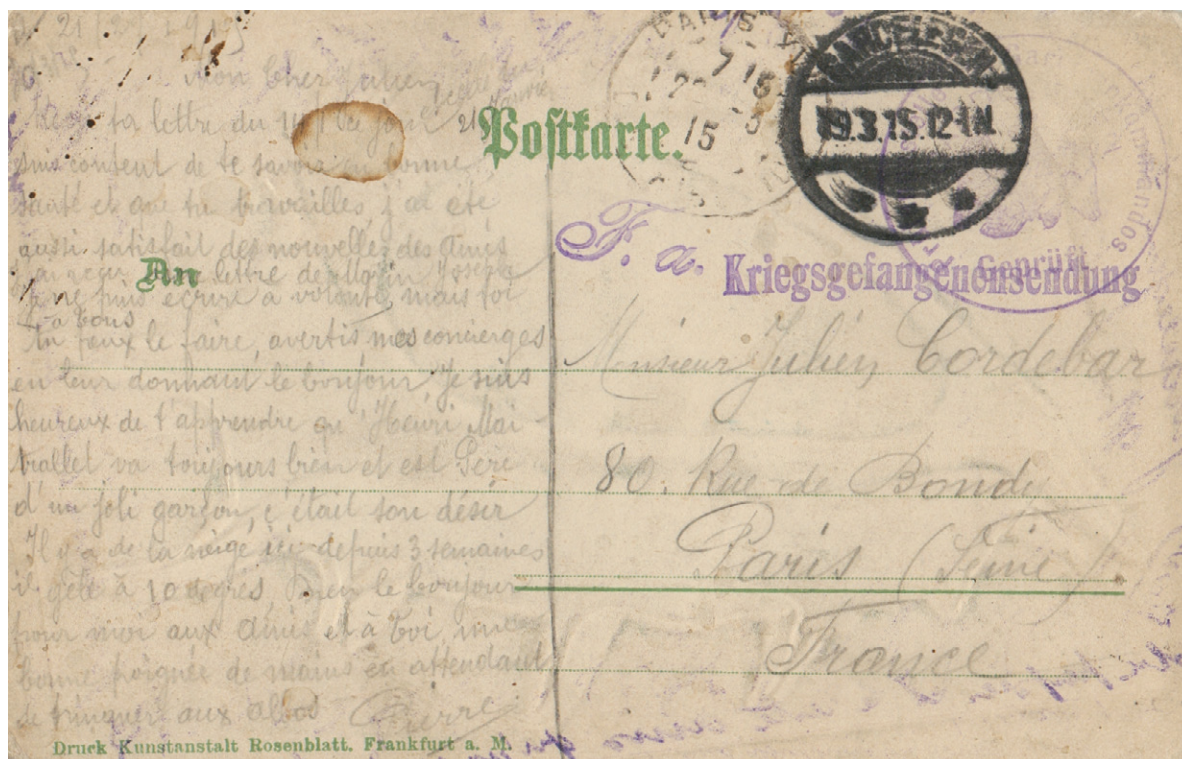 21 1915
Mon Cher Julien
ta lettre du
suis content de te savoir en bonne
santé et que tu travailles, j'ai été
aussi satisfait des nouvelles des Amis
j'ai reçu lettre de Joseph
je ne puis écrire à volonté, mais toi
à tous
tu peux le faire, avertis mes concierges
en leur donnant le bonjour Je suis
heureux de t'apprendre que Henri Mai
trallet va toujours bien et est Père
d'un joli garçon, c'était son désir
Il y a de la neige ici depuis 3 semaines
il gèle à 10 degrés, bien le bonjour
pour moi aux Amis et à toi, une
bonne poignée de mains en attendant
de trinquer aux Allos Pierre
Postkarte.
An
PARIS
15
19.3.15.12-1N
Geprüft
F. a.
Kriegsgefangenensendung
Monsieur Julien Cordebar
80. Rue de Bondy
Paris (Seine)
France
Druck Kunstanstalt Rosenblatt, Frankfurt a. M.